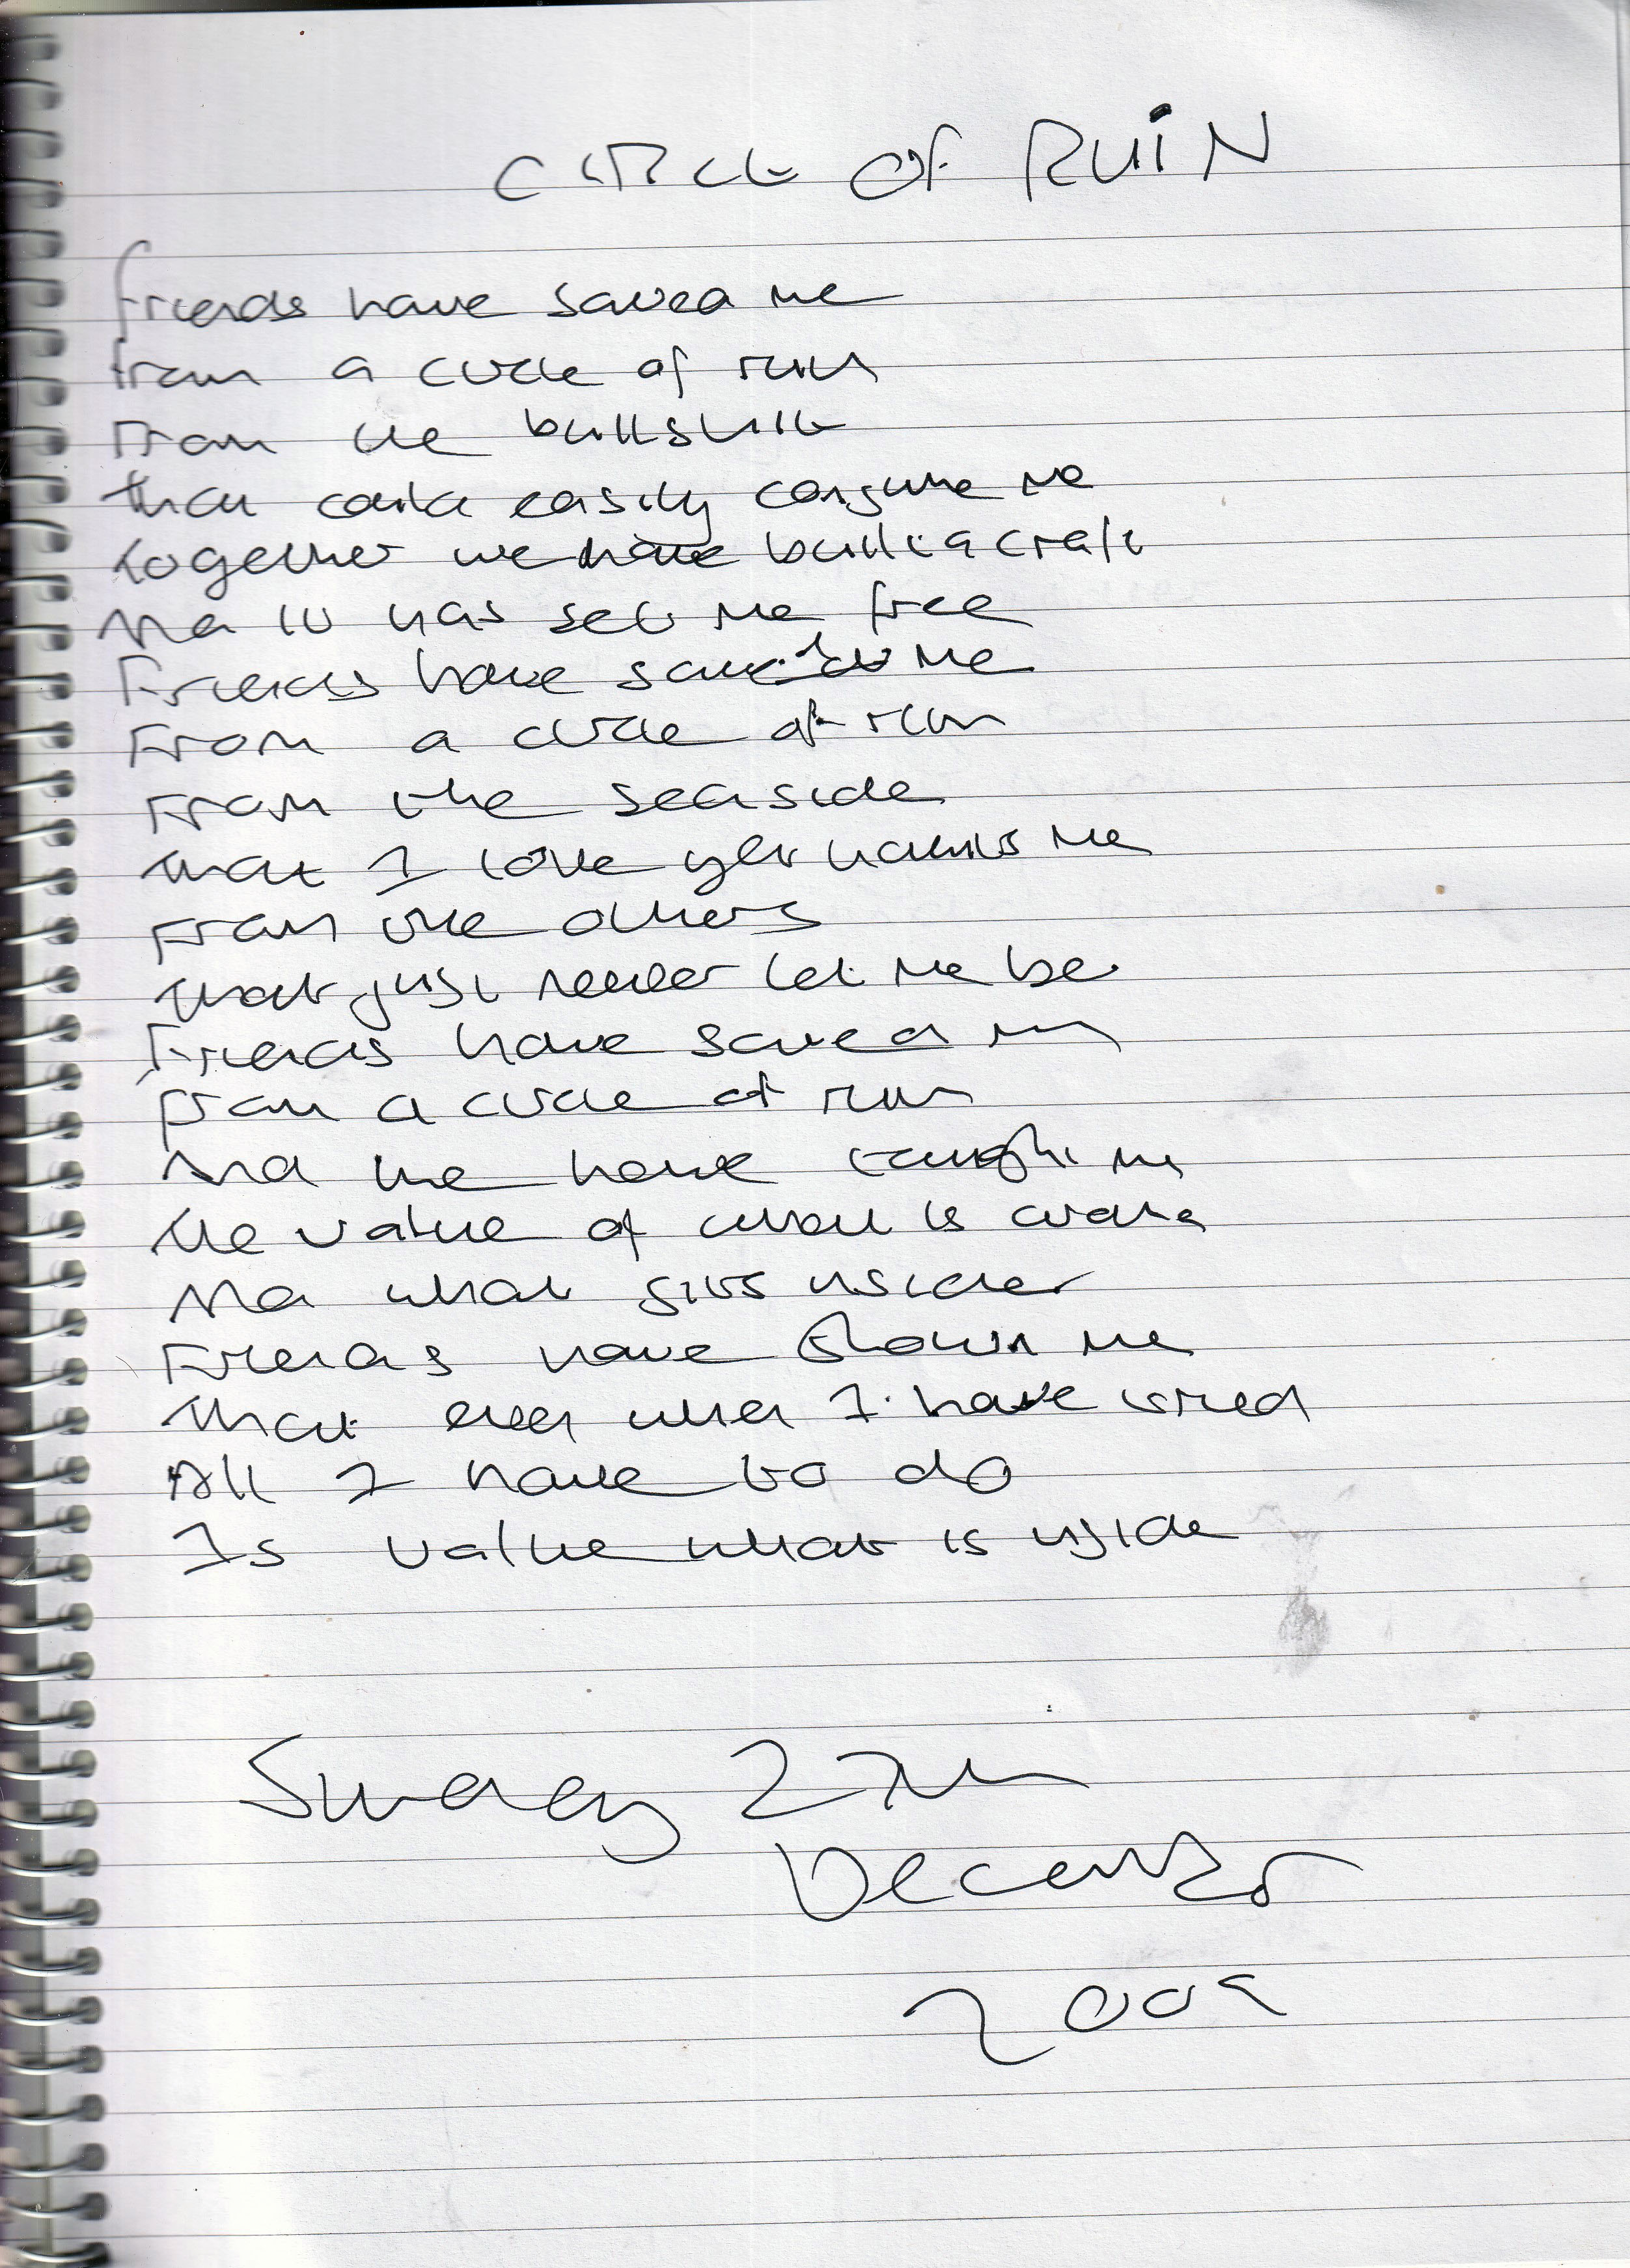 CIRCLE OF RUIN
Friends have saved me
from a circle of ruin
From the bullshit
that could easily consume me
together we have built a craft
And it has set me free
Friends have saved me
From a circle of ruin
From the seaside
that I love yet haunts me
From the others
that just never let me be
Friends have saved me
from a circle of ruin
And we have taught me
the value of what is
And what inside
Friends have shown me
that even when I have tried
All I have to do
Is value what is inside
Sunday 27th
December
2009